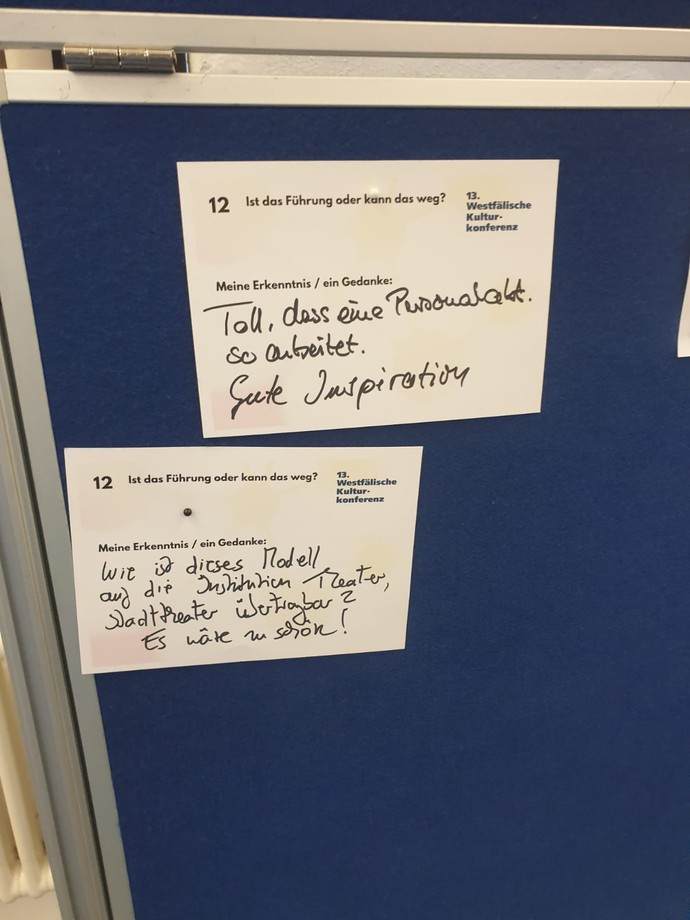 12 Ist das Führung oder kann das weg?
13.
Westfälische
Kultur-
konferenz
Meine Erkenntnis / ein Gedanke:
Toll, dass eine Personalabt.
so arbeitet.
Gute Inspiration
12 Ist das Führung oder kann das weg?
13.
Westfälische
Kultur-
konferenz
Meine Erkenntnis / ein Gedanke:
Wie ist dieses Modell
auf die Institution Theater,
Stadttheater übertragbar?
Es wäre zu schön!